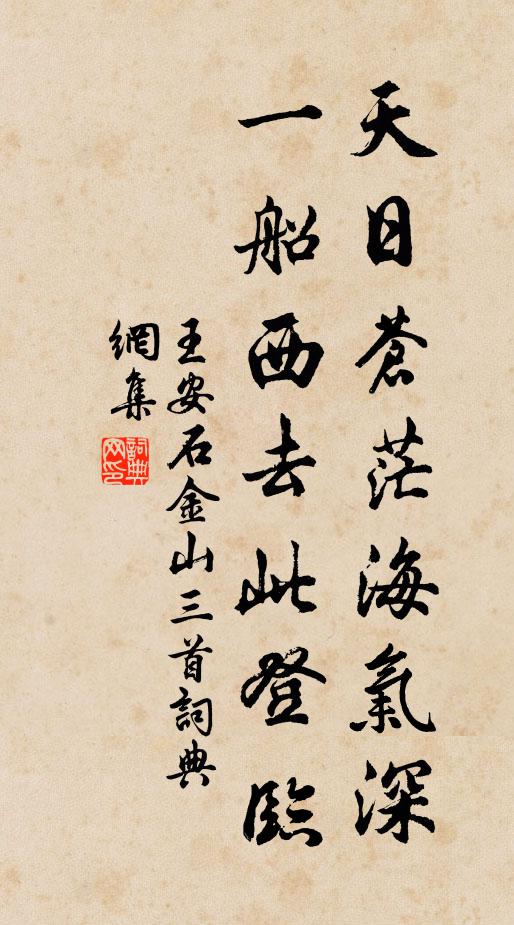 天日蒼茫海氣深
一船西去此登臨
王安石金山三首詞典
網集
詞典網印